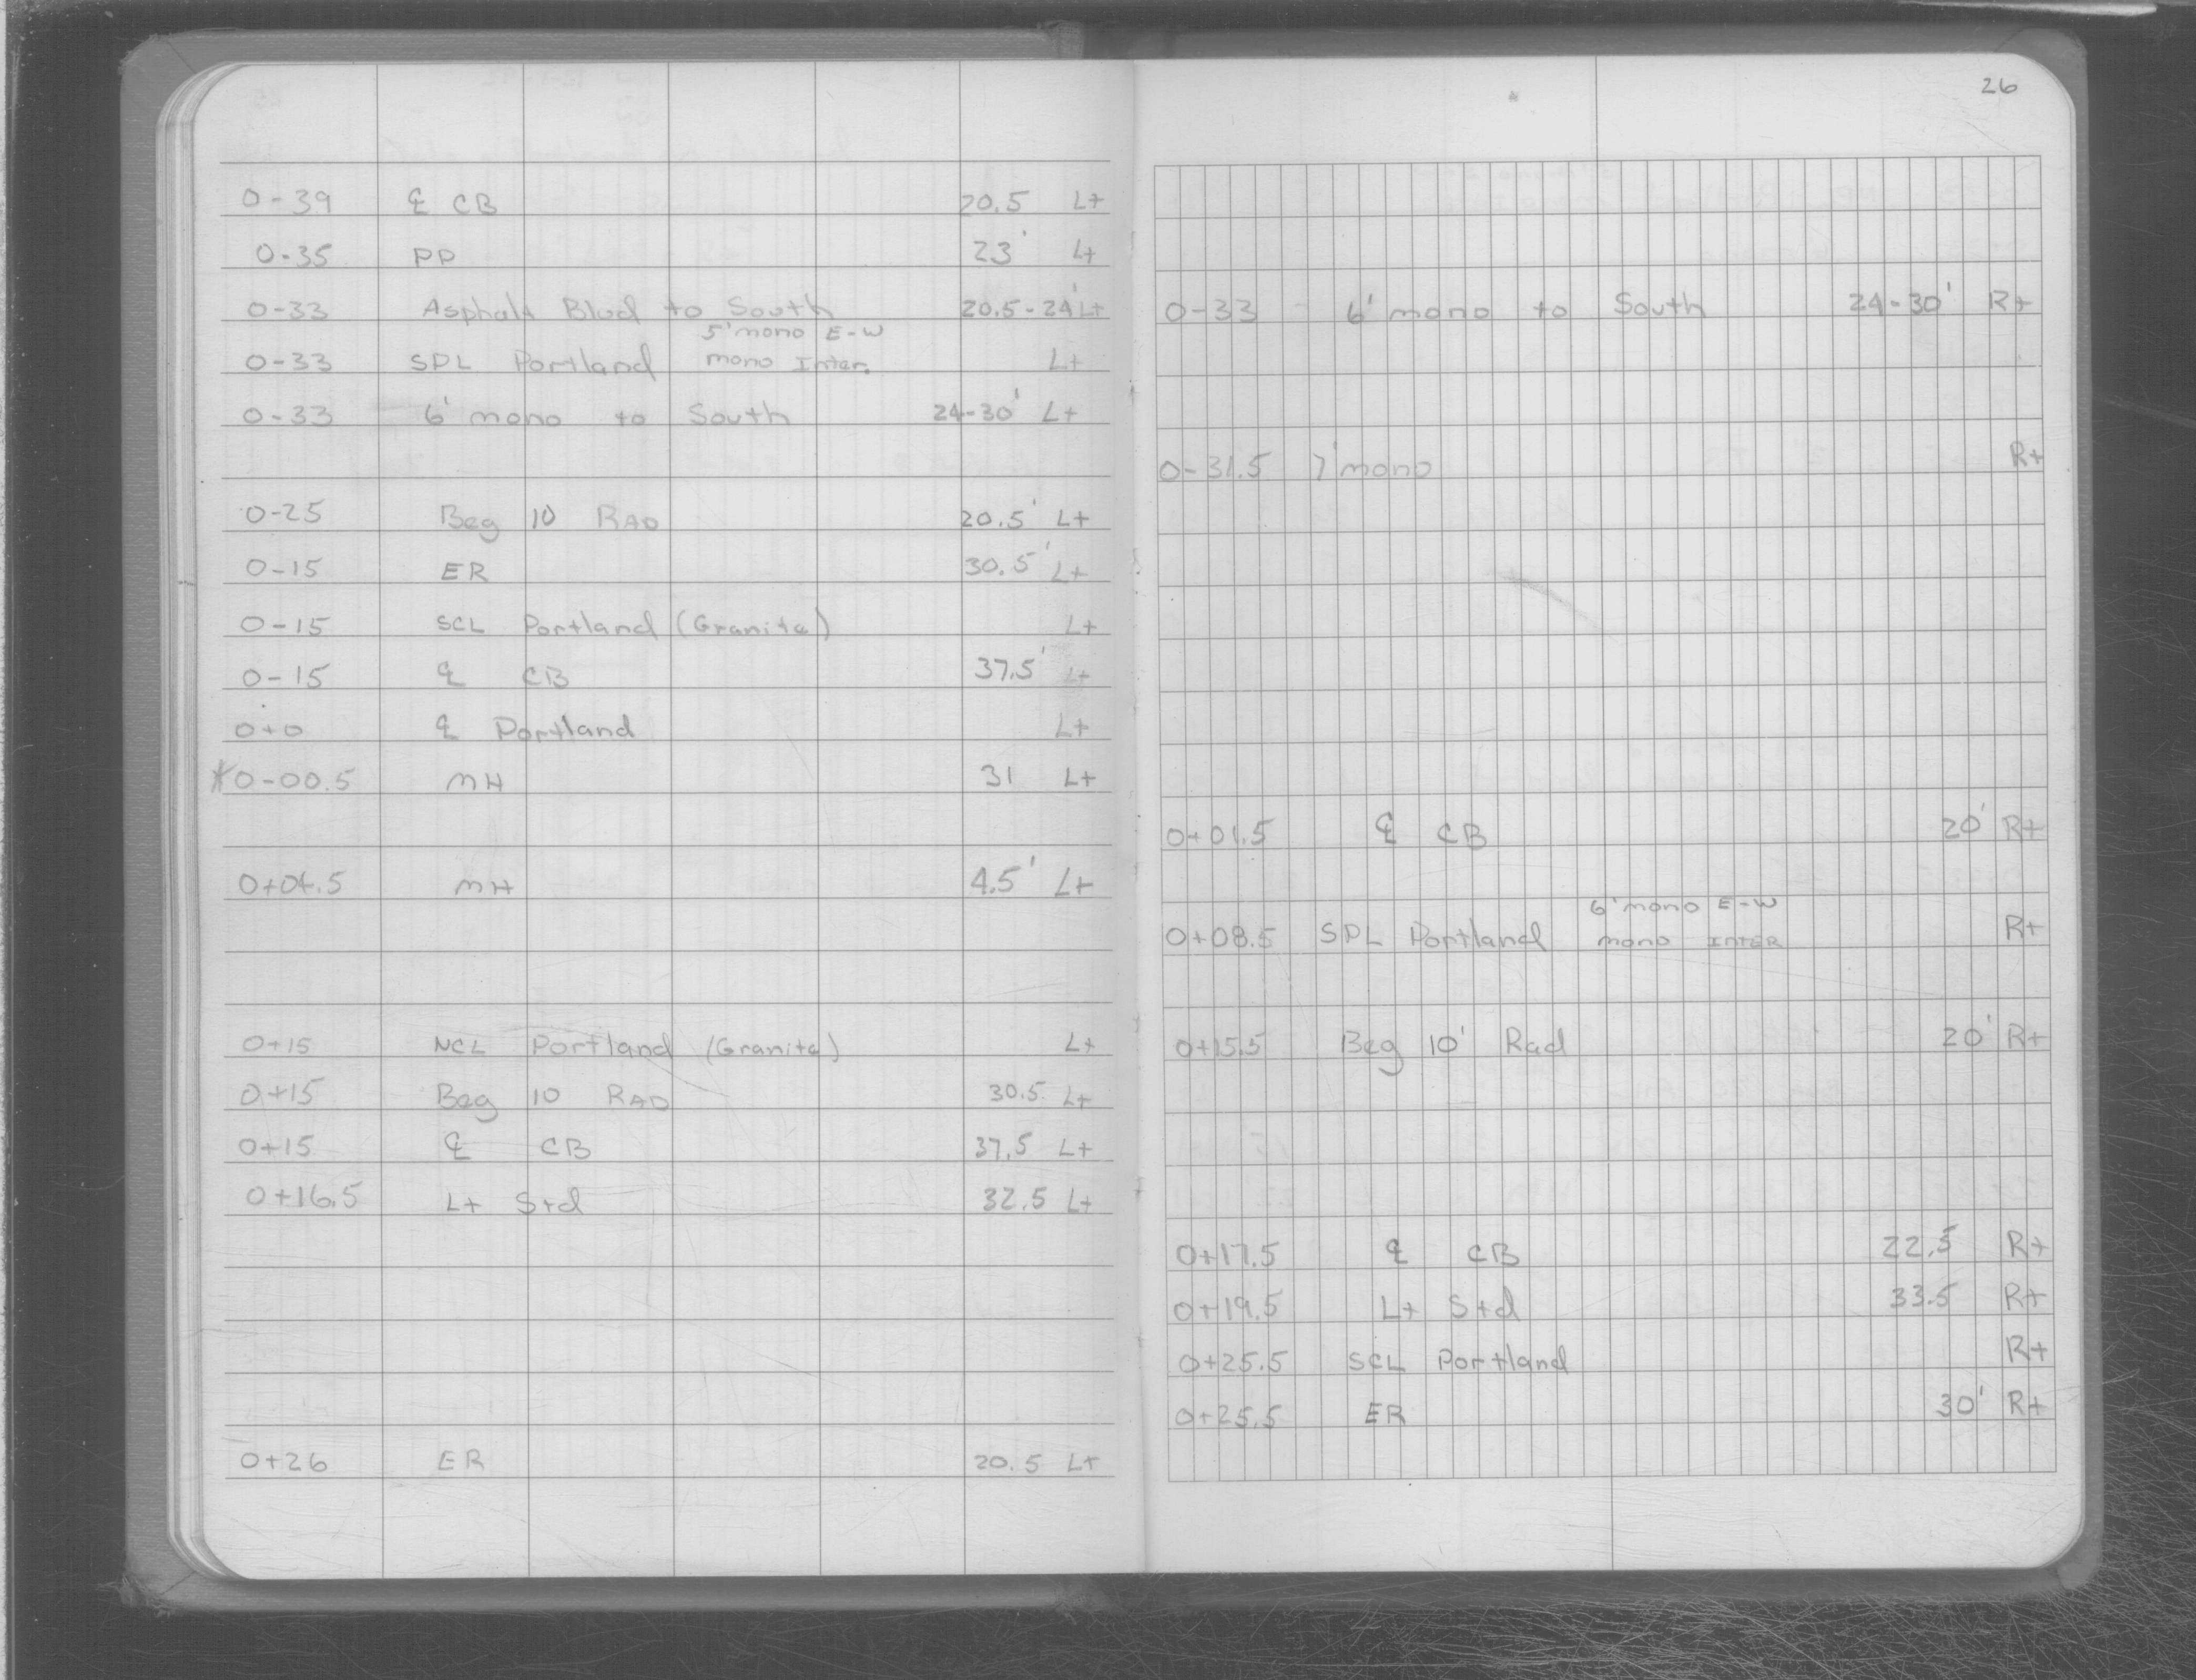 26
0-39 ℄ CB 20.5 Lt
0-35 PP 23' Lt
0-33 Asphalt Blvd to South 20.5-24' Lt
5' mono E-W
0-33 SPL Portland mono Inter. Lt
0-33 6' mono to South 24-30' Lt
0-25 Beg 10 RAD 20.5' Lt
0-15 ER 30.5' Lt
0-15 SCL Portland (Granite) Lt
0-15 ℄ CB 37.5' Lt
0+0 ℄ Portland Lt
*0-00.5 MH 31 Lt
0+04.5 MH 4.5' Lt
0+15 NCL Portland (Granite) Lt
0+15 Beg 10 RAD 30.5 Lt
0+15 ℄ CB 37.5 Lt
0+16.5 Lt Std 32.5 Lt
0+26 ER 20.5 Lt
0-33 6' mono to South 24-30' Rt
0-31.5 7' mono Rt
0+01.5 ℄ CB 20' Rt
6' mono E-W
0+08.5 SPL Portland mono INTER Rt
0+15.5 Beg 10' Rad 20' Rt
0+17.5 ℄ CB 22.5 Rt
0+19.5 Lt Std 33.5 Rt
0+25.5 SCL Portland Rt
0+25.5 ER 30' Rt